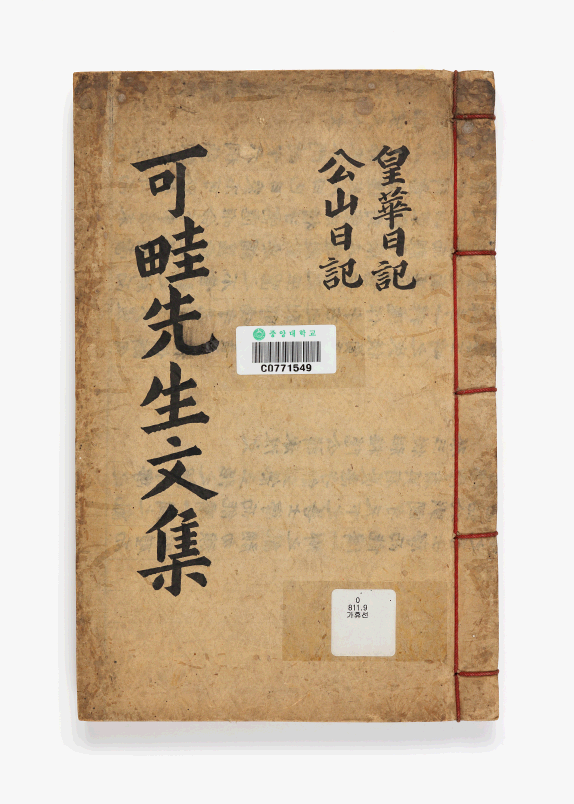 皇華日記
公山日記
可畦先生文集
중앙대학교
C0771549
0
811.9
가휴선